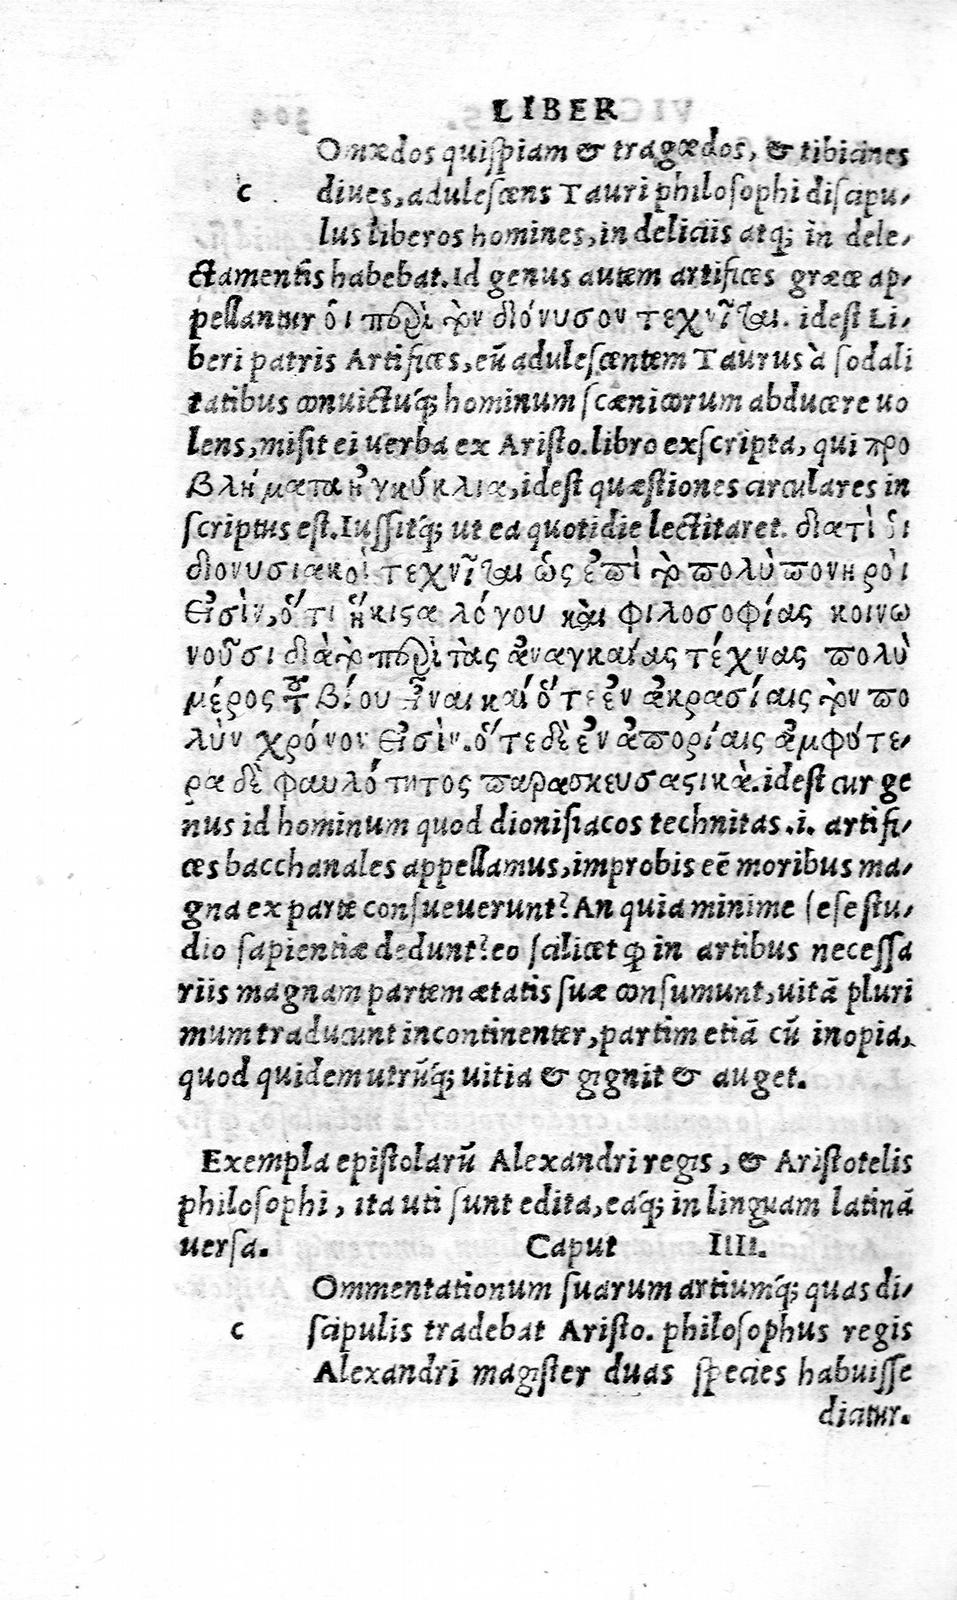 LIBER
Omœdos quiſpiam & tragœdos, & tibicines
c diues, aduleſcens Tauri philoſophi diſcipu-
lus liberos homines, in deliciis atq; in dele-
ctamentis habebat. Id genus autem artifices græce ap-
pellantur ὁι περὶ τὸν διόνυσον τεχνῖται. ideſt Li-
beri patris Artifices, eũ aduleſcentem Taurus à ſodali
tatibus conuictuq́; hominum ſcænicorum abducere uo
lens, miſit ei uerba ex Ariſto. libro exſcripta, qui προ
βλήματα ἐγκύκλια, ideſt quæſtiones circulares in
ſcriptus eſt. Iuſſitq́; ut ea quotidie lectitaret. διατὶ ὁι
διονυσιακοὶ τεχνῖται ὡς ἐπὶ τὸ πολὺ πονηρὸι
εἰσὶν, ὅτι ἥκιστα λόγου καὶ φιλοσοφίας κοινω
νοῦσι διὰ τὸ περὶ τὰς ἀναγκαίας τέχνας πολὺ
μέρος τοῦ βίου εἶναι καί ὅτι ἐν ἀκρασίαις τὸν πο
λὺν χρόνον εἰσὶν. ὅτε δὲ ἐν ἀπορίαις ἀμφότε-
ρα δὲ φαυλότητος παρασκευαστικὰ. ideſt cur ge
nus id hominum quod dioniſiacos technitas .i. artifi-
ces bacchanales appellamus, improbis eē moribus ma-
gna ex parte conſueuerunt? An quia minime ſeſe ſtu-
dio ſapientiæ dedunt? eo ſcilicet ꝙ in artibus neceſſa
riis magnam partem ætatis ſuæ conſumunt, uitā pluri
mum traducunt incontinenter, partim etiā cũ inopia,
quod quidem utrũq́; uitia & gignit & auget.
Exempla epiſtolarũ Alexandri regis, & Ariſtotelis
philoſophi, ita uti ſunt edita, eaq́; in linguam latinā
uerſa. Caput IIII.
Ommentationum ſuarum artiumq́; quas di-
c ſcipulis tradebat Ariſto. philoſophus regis
Alexandri magiſter duas ſpecies habuiſſe
dicitur.